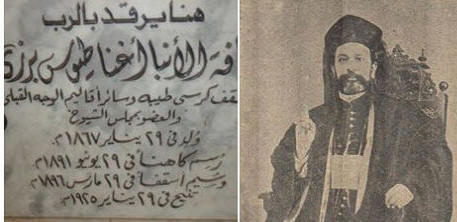 هنا يرقد بالرب
افة الأنبا أغناطيوس برزى
قف كرسى طيبه وسائر أقاليم الوجه القبلى
والعضو بمجلس الشيوخ
ولد فى ٢٩ يناير ١٨٦٧م.
رسم كاهنا فى ٢٩ يونيو ١٨٩١م
وسيم أسقفا فى ٢٩ مارس ١٨٩٦م
تنيح فى ٢٩ يناير ١٩٢٥م.